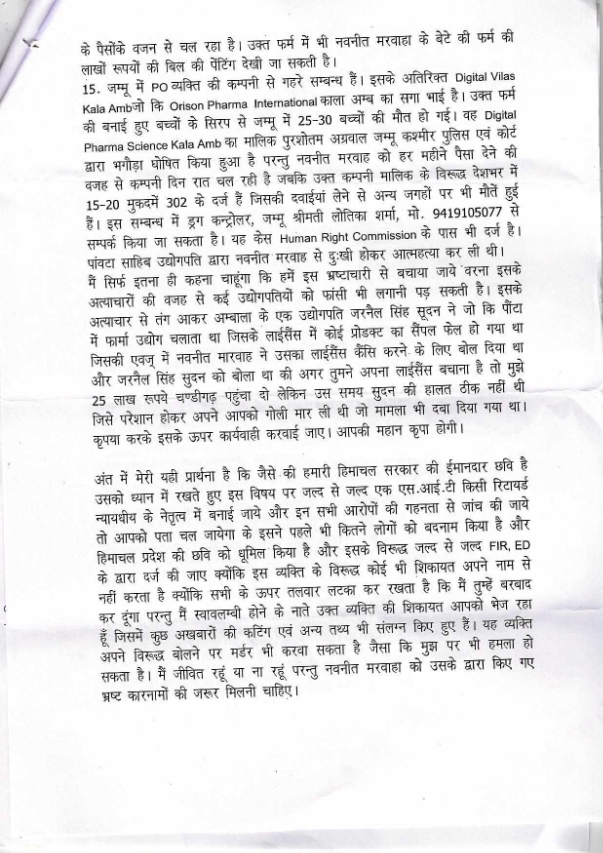 के पैसोंके वजन से चल रहा है। उक्त फर्म में भी नवनीत मरवाहा के बेटे की फर्म की
लाखों रूपयों की बिल की पेंटिंग देखी जा सकती है।
15. जम्मू में PO व्यक्ति की कम्पनी से गहरे सम्बन्ध हैं। इसके अतिरिक्त Digital Vilas
Kala Ambजो कि Orison Pharma International काला अम्ब का सगा भाई है। उक्त फर्म
की बनाई हुए बच्चों के सिरप से जम्मू में 25-30 बच्चों की मौत हो गई। वह Digital
Pharma Science Kala Amb का मालिक पुरशोतम अग्रवाल जम्मू कश्मीर पुलिस एवं कोर्ट
द्वारा भगौड़ा घोषित किया हुआ है परन्तु नवनीत मरवाह को हर महीने पैसा देने की
वजह से कम्पनी दिन रात चल रही है जबकि उक्त कम्पनी मालिक के विरूद्ध देशभर में
15-20 मुकदमें 302 के दर्ज हैं जिसकी दवाईयां लेने से अन्य जगहों पर भी मौतें हुई
हैं। इस सम्बन्ध में ड्रग कन्ट्रोलर, जम्मू श्रीमती लोतिका शर्मा, मो. 9419105077 से
सम्पर्क किया जा सकता है। यह केस Human Right Commission के पास भी दर्ज है।
पांवटा साहिब उद्योगपति द्वारा नवनीत मरवाह से दुःखी होकर आत्महत्या कर ली थी।
मैं सिर्फ इतना ही कहना चाहूंगा कि हमें इस भ्रष्टाचारी से बचाया जाये वरना इसके
अत्याचारों की वजह से कई उद्योगपतियों को फांसी भी लगानी पड़ सकती है। इसके
अत्याचार से तंग आकर अम्बाला के एक उद्योगपति जरनैल सिंह सूदन ने जो कि पौंटा
में फार्मा उद्योग चलाता था जिसके लाईसैंस में कोई प्रोडक्ट का सैंपल फेल हो गया था
जिसकी एवज् में नवनीत मारवाह ने उसका लाईसैंस कैंसि करने के लिए बोल दिया था
और जरनैल सिंह सुदन को बोला था की अगर तुमने अपना लाईसैंस बचाना है तो मुझे
25 लाख रूपये चण्डीगढ़ पहुंचा दो लेकिन उस समय सुदन की हालत ठीक नहीं थी
जिसे परेशान होकर अपने आपको गोली मार ली थी जो मामला भी दबा दिया गया था।
कृपया करके इसके ऊपर कार्यवाही करवाई जाए। आपकी महान कृपा होगी।
अंत में मेरी यही प्रार्थना है कि जैसे की हमारी हिमाचल सरकार की ईमानदार छवि है
उसको ध्यान में रखते हुए इस विषय पर जल्द से जल्द एक एस.आई.टी किसी रिटायर्ड
न्यायधीय के नेतृत्व में बनाई जाये और इन सभी आरोपों की गहनता से जांच की जाये
तो आपको पता चल जायेगा के इसने पहले भी कितने लोगों को बदनाम किया है और
हिमाचल प्रदेश की छवि को धूमिल किया है और इसके विरूद्ध जल्द से जल्द FIR, ED
के द्वारा दर्ज की जाए क्योंकि इस व्यक्ति के विरूद्ध कोई भी शिकायत अपने नाम से
नहीं करता है क्योंकि सभी के ऊपर तलवार लटका कर रखता है कि मैं तुम्हें बरबाद
कर दूंगा परन्तु मैं स्वावलम्बी होने के नाते उक्त व्यक्ति की शिकायत आपको भेज रहा
हूँ जिसमें कुछ अखबारों की कटिंग एवं अन्य तथ्य भी संलग्न किए हुए हैं। यह व्यक्ति
अपने विरूद्ध बोलने पर मर्डर भी करवा सकता है जैसा कि मुझ पर भी हमला हो
सकता है। मैं जीवित रहूं या ना रहूं परन्तु नवनीत मरवाहा को उसके द्वारा किए गए
भ्रष्ट कारनामों की जरूर मिलनी चाहिए।